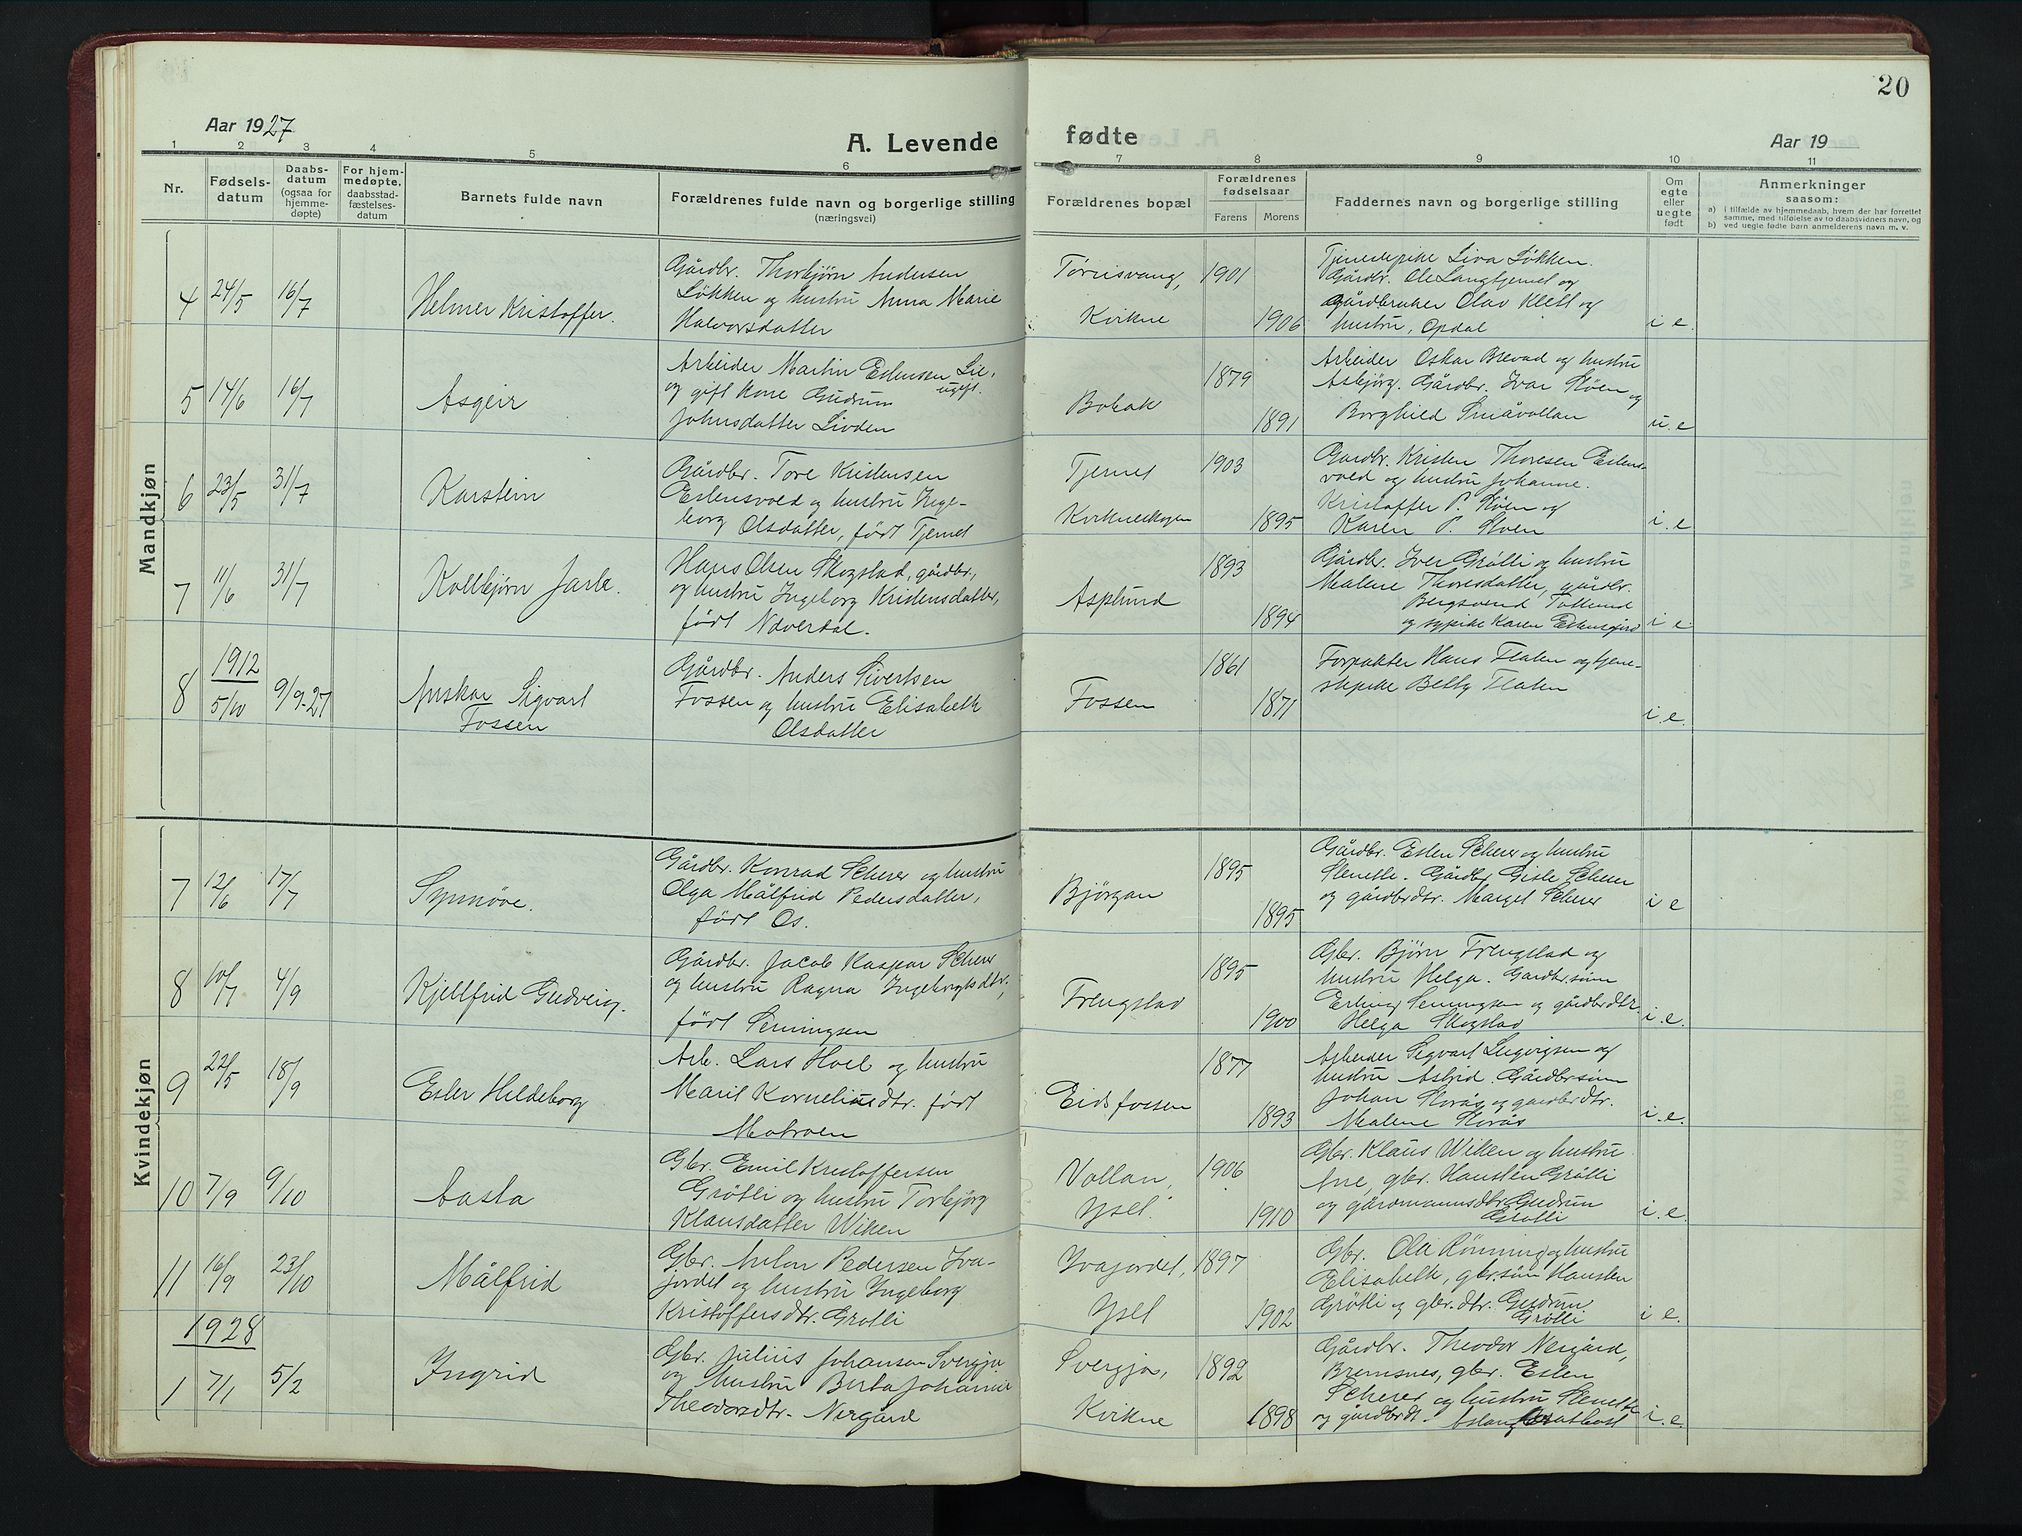 20
Aar 1927
A. Levende
fødte
Aar 19
1 2 3 4 5 6 7 8 9 10 11
Nr.
Fødsels-
datum
Daabs-
datum
(ogsaa for
hjemme-
døpte)
For hjem-
medøpte,
daabsstad-
fæstelses-
datum
Barnets fulde navn
Forældrenes fulde navn og borgerlige stilling
(næringsvei)
Forældrenes bopæl
Forældrenes
fødselsaar
Farens Morens
Faddernes navn og borgerlige stilling
Om
egte
eller
uegte
født
Anmerkninger
saasom:
a) i tilfælde av hjemmedaab, hvem der har forrettet
samme, med tilføielse av to daabsvidners navn, og
b) ved uegte fødte barn anmelderens navn m. v.
Mandkjøn
4 24/5 16/7
Helmer Kristoffer.
Gårdbr. Thorbjørn Andersen
Løkken og hustru Anna Marie
Halvorsdatter
Kvikne
1901
1906
Tjenestepike Liva Løkken.
Gårdbr. Ole Langtjernet og
gårdbruker Olav Klett og
hustru, Opdal
i e.
5 14/6 16/7
Asgeir
Arbeider Martin Estensen Lie,
ugift.
og gift kone Gudrun
Johnsdatter Livden
Bobak
1879
1891
Arbeider Oskar Brevad og hustru
Asbjørg. Gårdbr. Ivar Støen og
Borghild Småvollan
u. e
6 23/5 31/7
Karstein
Gårdbr. Tore Kristensen
Estensvold og hustru Inge-
borg Olsdatter, født Tjernet
Tjernet
Kvikneskogen
1903
1895
Gaardbr. Kristen Thoresen Estens-
vold og hustru Johanne.
Kristoffer P. Støen og
Karen P. Støen
i. e
7 11/6 31/7
Kolbjørn Jarle.
Hans Olsen Skogstad, gårdbr.,
og hustru Ingeborg Kristensdatter,
født Nåverdal.
Asplund
1893
1894
Gårdbr. Iver Grøtli og hustru
Malene Thoresdatter, gårdbr.
Bergsvend Tollund
og sypike Karen Estensgård
i e
8 1912
5/10 9/9-27
Anskar Sigvart
Fossen
Gårdbr. Anders Sivertsen
Fossen og hustru Elisabeth
Olsdatter
Fossen
1861
1871
Forpakter Hans Flaten og tjene-
stepike Betty Flaten
i. e.
Kvindekjøn
7 12/6 17/7
Synnøve.
Gårdbr. Konrad Scherer og hustru
Olga Målfrid Pedersdatter,
født Os.
Bjørgan
1895
1895
Gårdbr. Esten Scherer og hustru
Stenette. Gårdbr. Gisle Scherer
og gårdbrdtr. Marget Scherer
i e
8 10/7 4/9
Kjellfrid Gudveig.
Gårdbr. Jacob Kaspar Scherer
og hustru Ragna Ingeborgsdtr.,
født Semingsen
Frengstad
1895
1900
Gbr. Bjørn Frengstad og
hustru Helga. Gardbr.søn
Erling Semingsen og gårdbrdtr
Helga Skogstad
i. e.
9 22/5 18/9
Ester Hildeborg
Arb. Lars Hoel og hustru
Marit Korneliusdtr. født
Mobroen
Eidsfossen
1877
1893
Arbeider Sigvart Ingvigsen og
hustru Astrid. Gårdbrsønn
Johan Storås og gårdbrdtr.
Malene Storås
i. e.
10 7/9 9/10
Aasta
Gbr. Emil Kristoffersen
Grøtli og hustru Torbjørg
Klausdatter Wiken
Vollan,
Yset.
1906
1910
Gbr. Klaus Wiken og hustru
Ane, gbr. Hansten Grøtli
og gårdmannsdtr. Gudrun
Grøtli
i. e.
11 16/9 23/10
Målfrid
Gbr. Anton Pedersen Iva-
jordet og hustru Ingeborg
Kristoffersdtr. Grøtli
Ivajordet,
Yset
1897
1902
Gbr. Ola Rønning og hustru
Elisabeth, gbr.søn Hansten
Grøtli og gbr.dtr. Gudrun
Grøtli
i e.
1928
1 7/1 5/2
Ingrid
Gbr. Julius Johansen Svergja
og hustru Berta Johanne
Theodorsdtr. Nergård
Svergja,
Kvikne
1892
1898
Gårdbr. Theodor Nergård,
Bremsnes, gbr. Esten
Scherer og hustru Stenette
og gårdbrdt.
i. e.